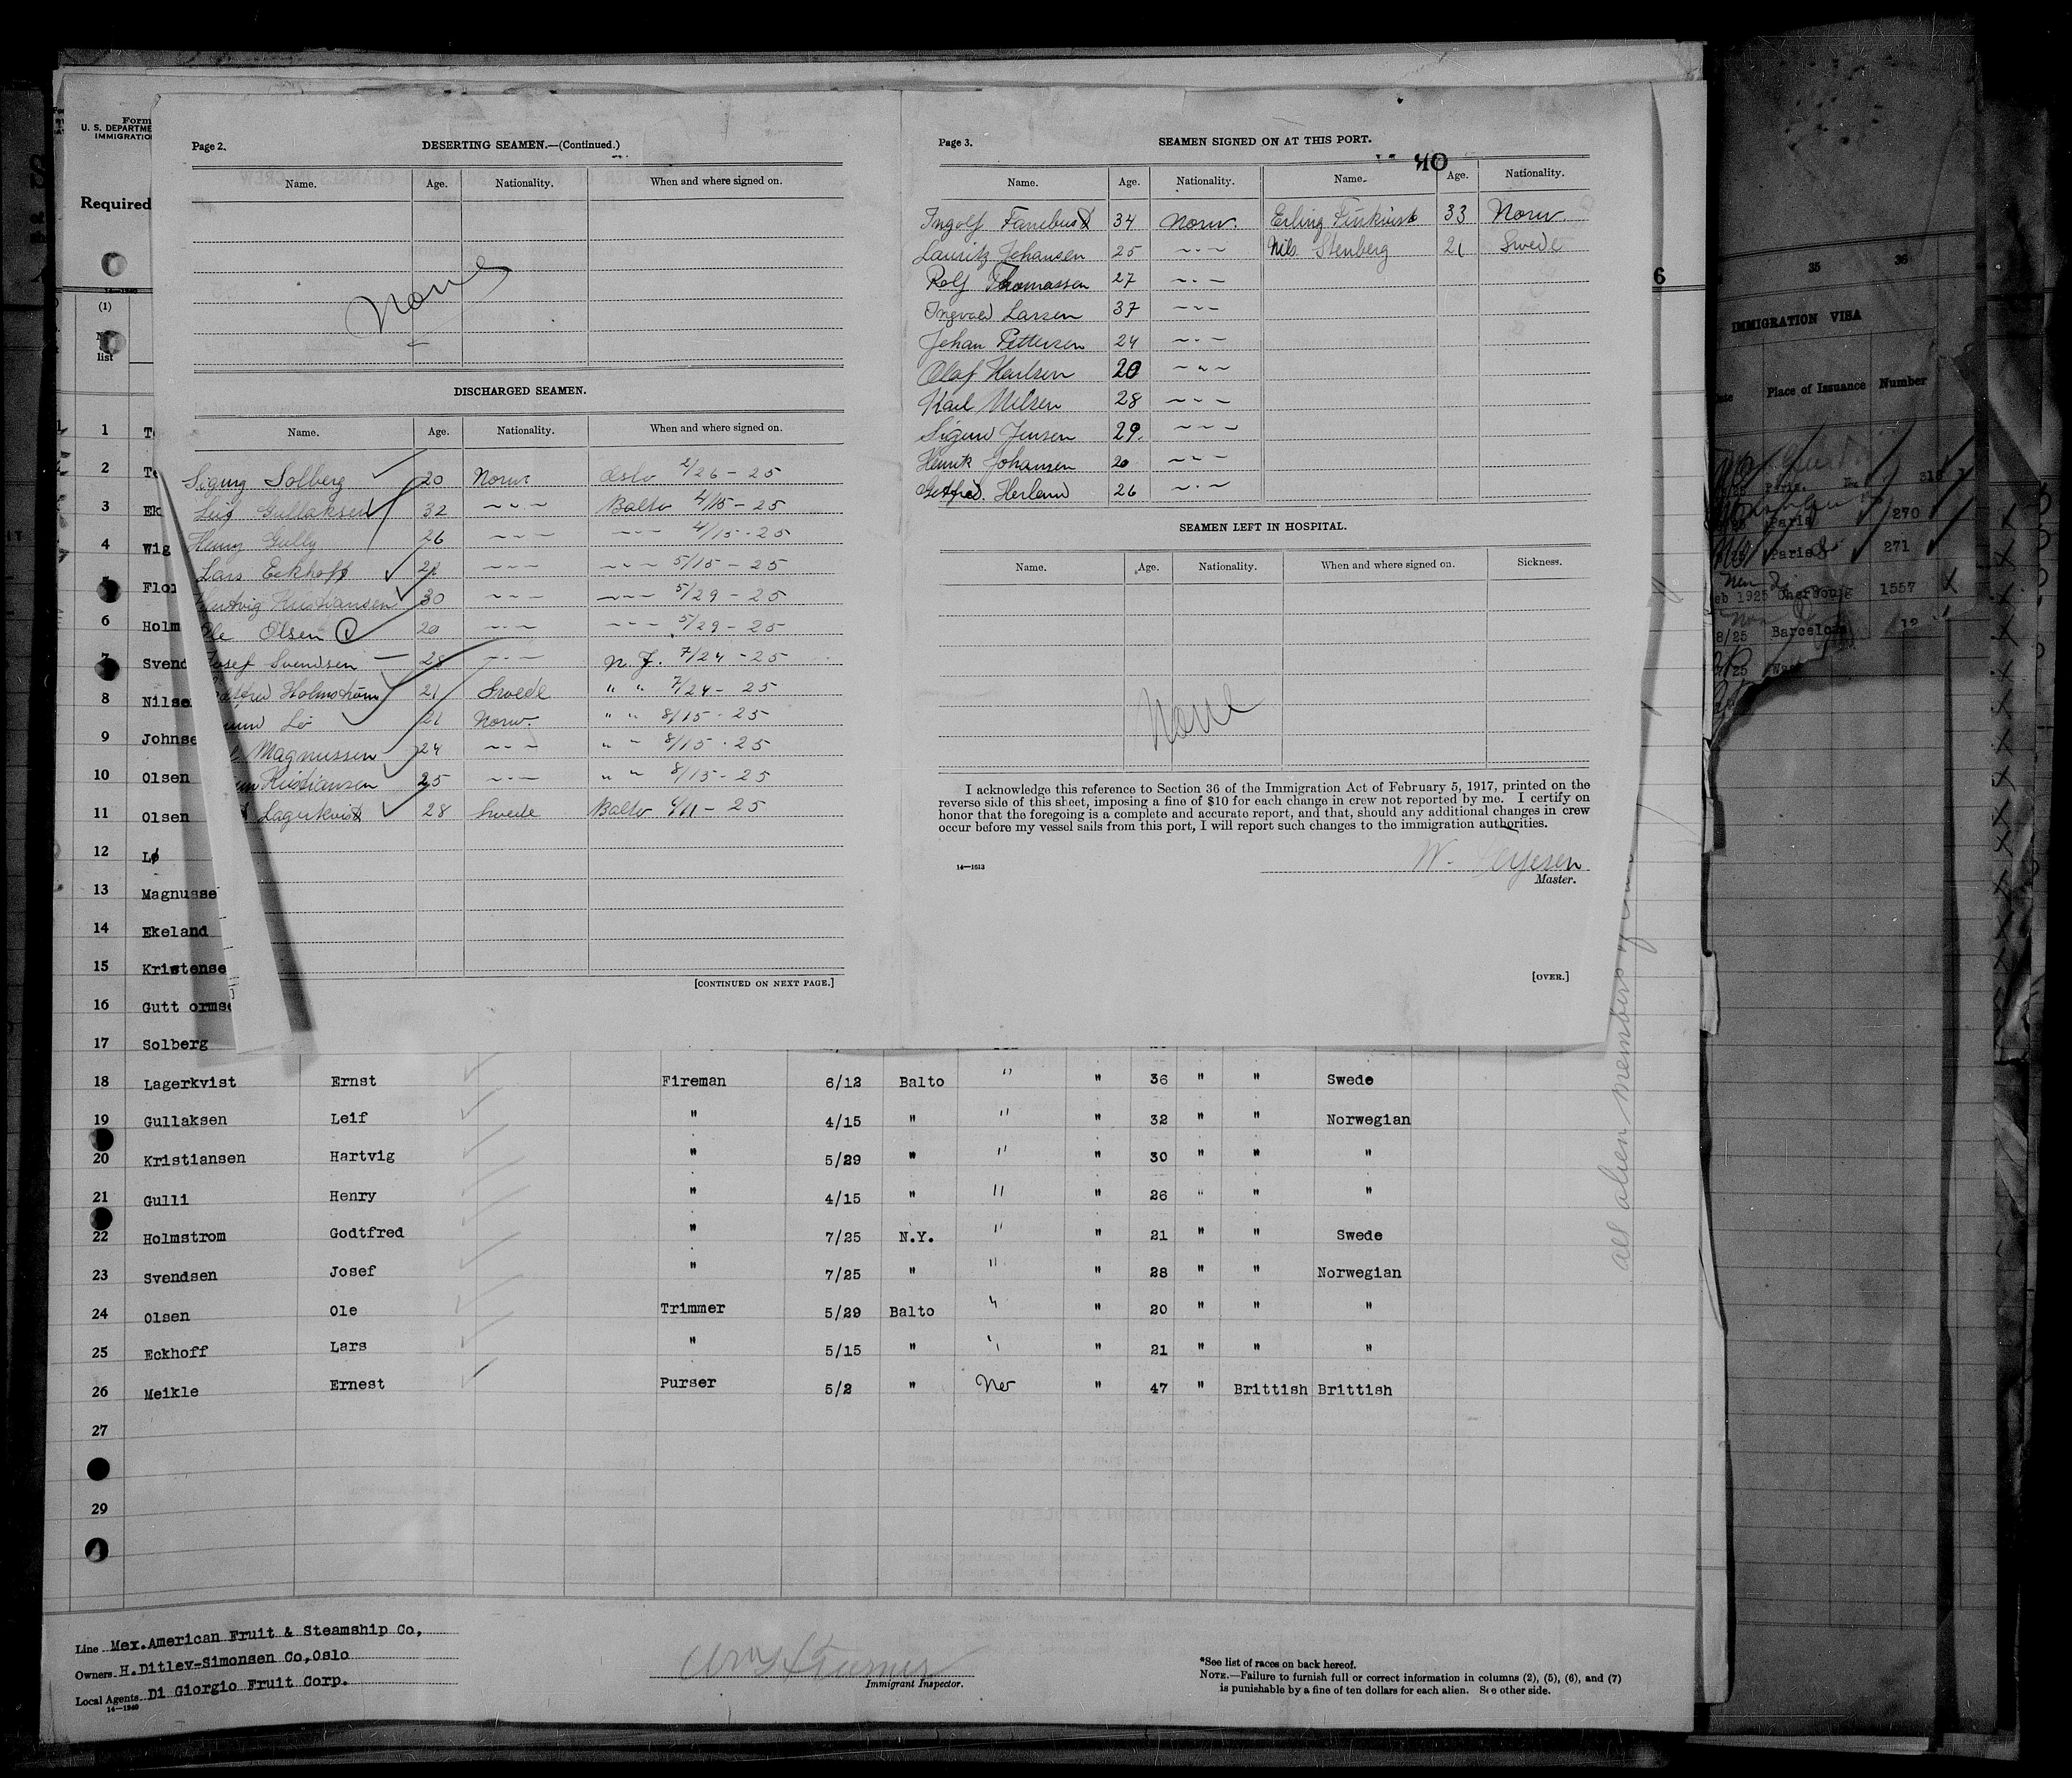 Page 2.
DESERTING SEAMEN.—(Continued.)
Name. Age. Nationality. When and where signed on.
None
DISCHARGED SEAMEN.
Name. Age. Nationality. When and where signed on.
Sigurg Solberg 20 Norw. Oslo 2/26-25
Leif Gullaksen 32 -"- Balto 4/15-25
Henry Gully 26 -"- -"- 4/15-25
Lars Eckhoff 21 -"- -"- 5/15-25
Hartvig Kristiansen 30 -"- -"- 5/29-25
Ole Olsen 20 -"- -"- 5/29-25
Josef Svendsen 28 -"- N.Y. 7/24-25
Holmstrøm 21 Swede " " 7/24-25
Lø 21 Norw. " " 8/15-25
Magnussen 24 -"- " " 8/15-25
Kristiansen 25 -"- " " 8/15-25
Lagerkvist 28 Swede Balto 25
[CONTINUED ON NEXT PAGE.]
Page 3.
SEAMEN SIGNED ON AT THIS PORT.
40
Name. Age. Nationality. Name. Age. Nationality.
Ingolf 34 Norw. Erling 33 Norw.
Lauritz Johansen 25 -"- Nils Stenberg 21 Swede
Rolf Thomassen 27 -"-
Ingvald Larsen 37 -"-
Johan Pettersen 24 -"-
Olaf 20 -"-
Karl Nilsen 28 -"-
Sigurd Jensen 29. -"-
Henrik Johansen 20 -"-
Gotfred. Herland 26 -"-
SEAMEN LEFT IN HOSPITAL.
Name. Age. Nationality. When and where signed on. Sickness.
None
I acknowledge this reference to Section 36 of the Immigration Act of February 5, 1917, printed on the
reverse side of this sheet, imposing a fine of $10 for each change in crew not reported by me. I certify on
honor that the foregoing is a complete and accurate report, and that, should any additional changes in crew
occur before my vessel sails from this port, I will report such changes to the immigration authorities.
14—1613
W.
Master.
[OVER.]
Form
U. S. DEPARTME
IMMIGRATIO
Required
6
(1)
list
1
2
3 Ek
4 Wig
Flo
6 Holm
Svend
8 Nilse
9 Johnse
10 Olsen
11 Olsen
12 Lø
13 Magnusse
14 Ekeland
15 Kristense
16 Gutt orms
17 Solberg
18 Lagerkvist Ernst Fireman 6/12 Balto " " 36 " " Swede
19 Gullaksen Leif " 4/15 " " " 32 " " Norwegian
20 Kristiansen Hartvig " 5/29 " " " 30 " " "
21 Gulli Henry " 4/15 " " " 26 " " "
22 Holmstrom Godtfred " 7/25 N.Y. " " 21 " " Swede
23 Svendsen Josef " 7/25 " " " 28 " " Norwegian
24 Olsen Ole Trimmer 5/29 Balto " " 20 " " "
25 Eckhoff Lars " 5/15 " " " 21 " " "
26 Meikle Ernest Purser 5/2 " " 47 " Brittish Brittish
27
29
all alien members of
Line Mex.American Fruit & Steamship Co,
Owners H.Ditlev-Simonsen Co,Oslo
Local Agents Di Giorgio Fruit Corp.
14—1240
Immigrant Inspector.
*See list of races on back hereof.
NOTE.—Failure to furnish full or correct information in columns (2), (5), (6), and (7)
is punishable by a fine of ten dollars for each alien. See other side.
35 36
IMMIGRATION VISA
Place of Issuance Number
Paris.
Paris 270
Paris 271
eb 1925 Cherbourg 1557
8/25 Barcelona 12
/25